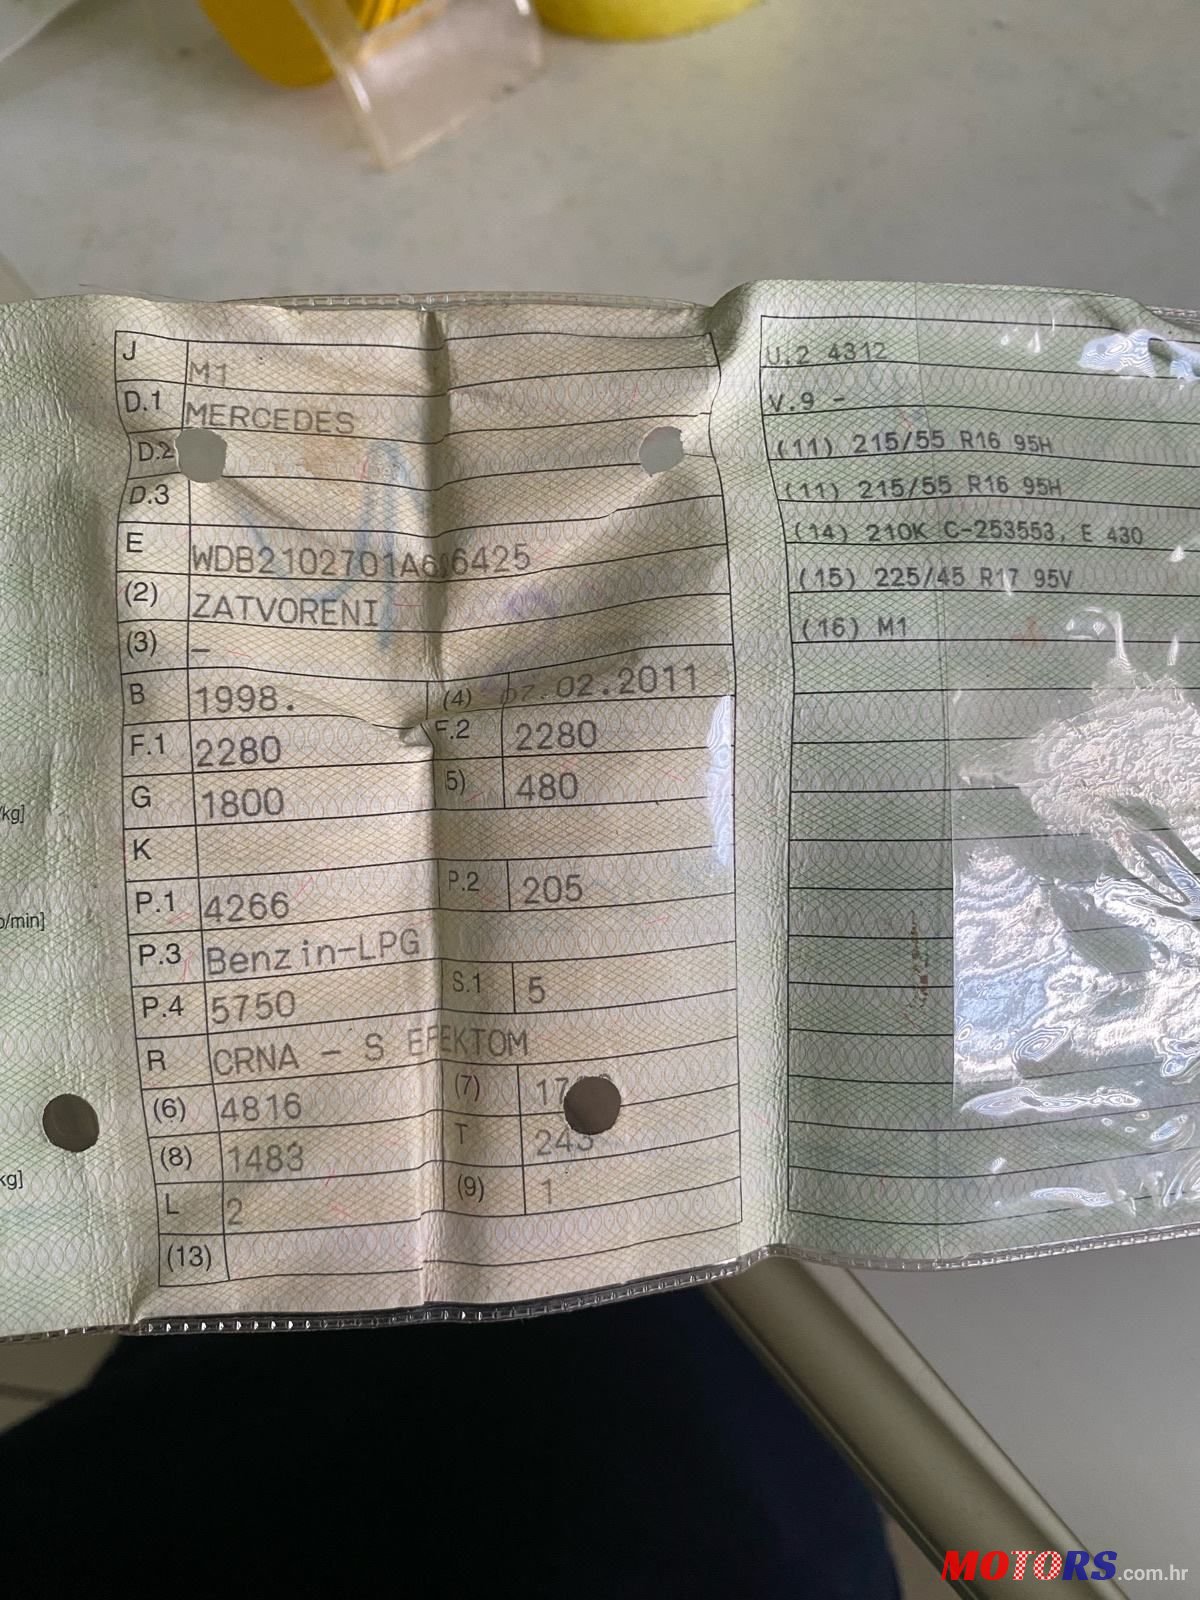 J M1
D.1 MERCEDES
D.2
D.3
E
(2) ZATVORENI
(3) –
B 1998. (4) 07.02.2011
F.1 2280 F.2 2280
G 1800 5) 480
K
P.1 4266 P.2 205
P.3 Benzin-LPG
P.4 5750 S.1 5
R CRNA - S EFEKTOM
(6) 4816 (7)
(8) 1483 T 243
L 2 (9) 1
(13)
U.2 4312
V.9 -
(11) 215/55 R16 95H
(11) 215/55 R16 95H
(14) 210K C-253553, E 430
(15) 225/45 R17 95V
(16) M1
/kg]
o/min]
kg]
MOTORS.com.hr